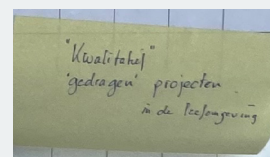 "Kwaliteit"
'gedragen' projecten
in de leefomgeving